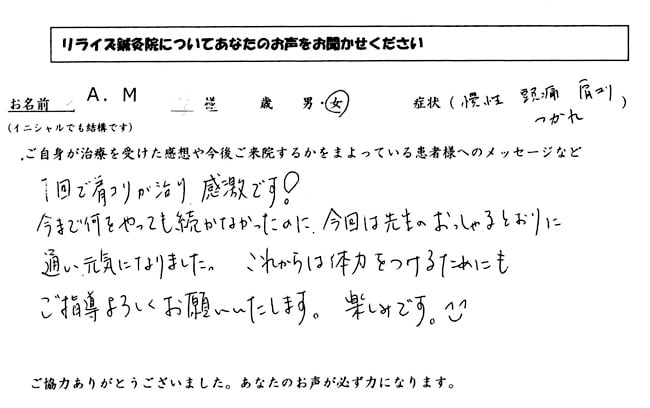 リライズ鍼灸院についてあなたのお声をお聞かせください
お名前 A. M 様 歳 男・女 症状 ( 慢性 頭痛 肩コリ つかれ )
(イニシャルでも結構です)
ご自身が治療を受けた感想や今後ご来院するかをまよっている患者様へのメッセージなど
1回で肩コリが治り 感激です!
今まで何をやっても続かなかったのに、今回は先生のおっしゃるとおりに
通い、元気になりました。 これからは体力をつけるためにも
ご指導よろしくお願いいたします。 楽しみです。
ご協力ありがとうございました。あなたのお声が必ず力になります。